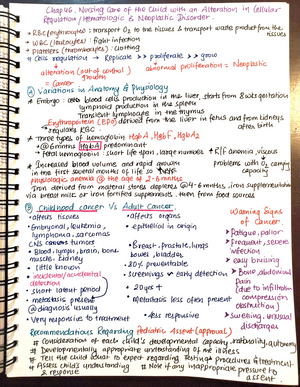 Chap 46. Nursing Care of the Child with an Alteration in Cellular
Regulation / Hematologic & Neoplastic Disorder.
• RBC (erythrocytes): transport O₂ to the tissues & transport waste product from the tissues
• WBC (leukocytes): fight infection
• Platelets (thrombocytes): Clotting
• Cells regulation → Replicate →→ proliferate →→ grow
alteration (out of control)
abnormal proliferation = Neoplastic
= Cancer growth
Ⓐ Variations in Anatomy & Physiology
• Embryo: blood cells production in the liver, starts from 8 wks gestation
lymphoid production in the spleen
Transient lymphocytes in the thymus
Erythropoietin (EPO) derived from the liver in fetus and from kidneys after birth
→ regulates RBC
• Three types of hemoglobin Hgb A, Hgb F, Hgb A2
→ @ 6 months Hgb A predominant
fetal hemoglobin: short life span, large number
• Increased blood volume and rapid growth
in the first several months of life so
physiologic anemia @ the age of 2-6 months
Iron derived from maternal stores depletes @ 4-6 months, iron supplementation
via breast milk or iron fortified supplements, then from food sources
Ⓑ Childhood cancer Vs Adult Cancer
• affects tissues
• affects organs
• Embryonal, leukemia, lymphoma, sarcomas
• epithelial in origin
CNS cancers tumors
• Blood, lymph, brain, bone
muscle, kidney
• Breast, prostate, lungs
bowel, bladder
• little known
• 80% preventable
• incidental/accidental detection
• screenings → early detection
• short latent period
• 20 yrs +
• metastasis present
@ diagnosis usually
• Metastasis less often present
• Very responsive to treatment
• less responsive
Warning Signs
of Cancer
* Fatigue, pallor
* Frequent, severe
infection
* easy bruising
* Bone, abdominal
Pain
(due to infiltration
compression
obstruction)
* Swelling, unusual
discharges
Recommendations Regarding Pediatric Assent (approval)
# Consideration of each child's developmental capacity, rationality, autonomy
# Developmentally appropriate understanding of the illness
# Tell the child what to expect regarding testings, procedures & treatment
# Assess child's understanding
& response
# Note if any inappropriate pressure
to assent